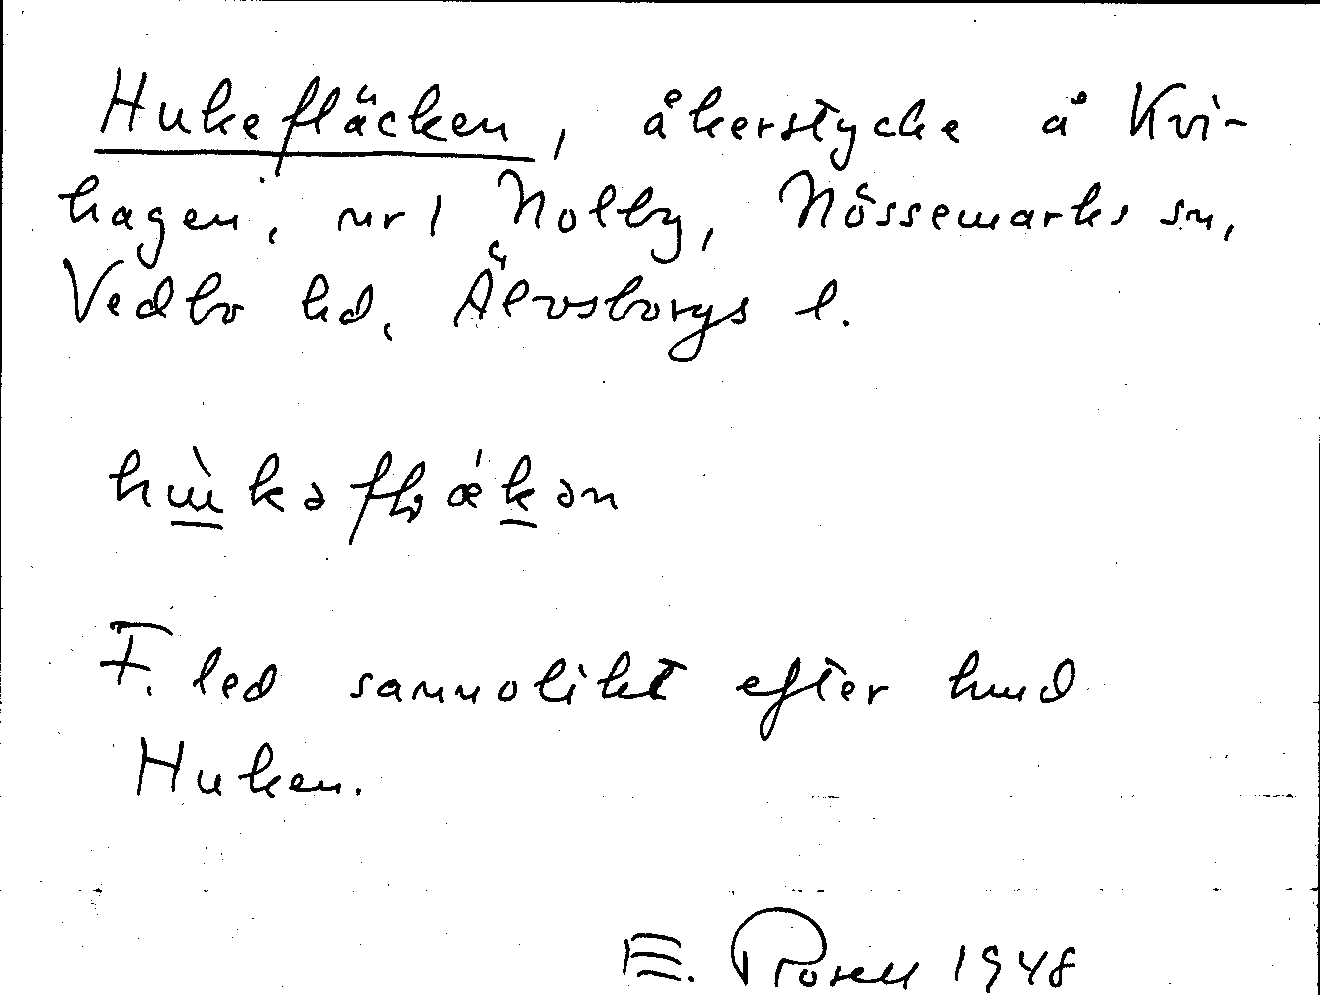 Hukefläcken, åkerstycke å Kvi-
hagen, nr 1 Nolby, Nössemarks sn,
Vedbo hd, Älvsborgs l.
F. led sannolikt efter hmd
Huken.
E. Rosell 1948